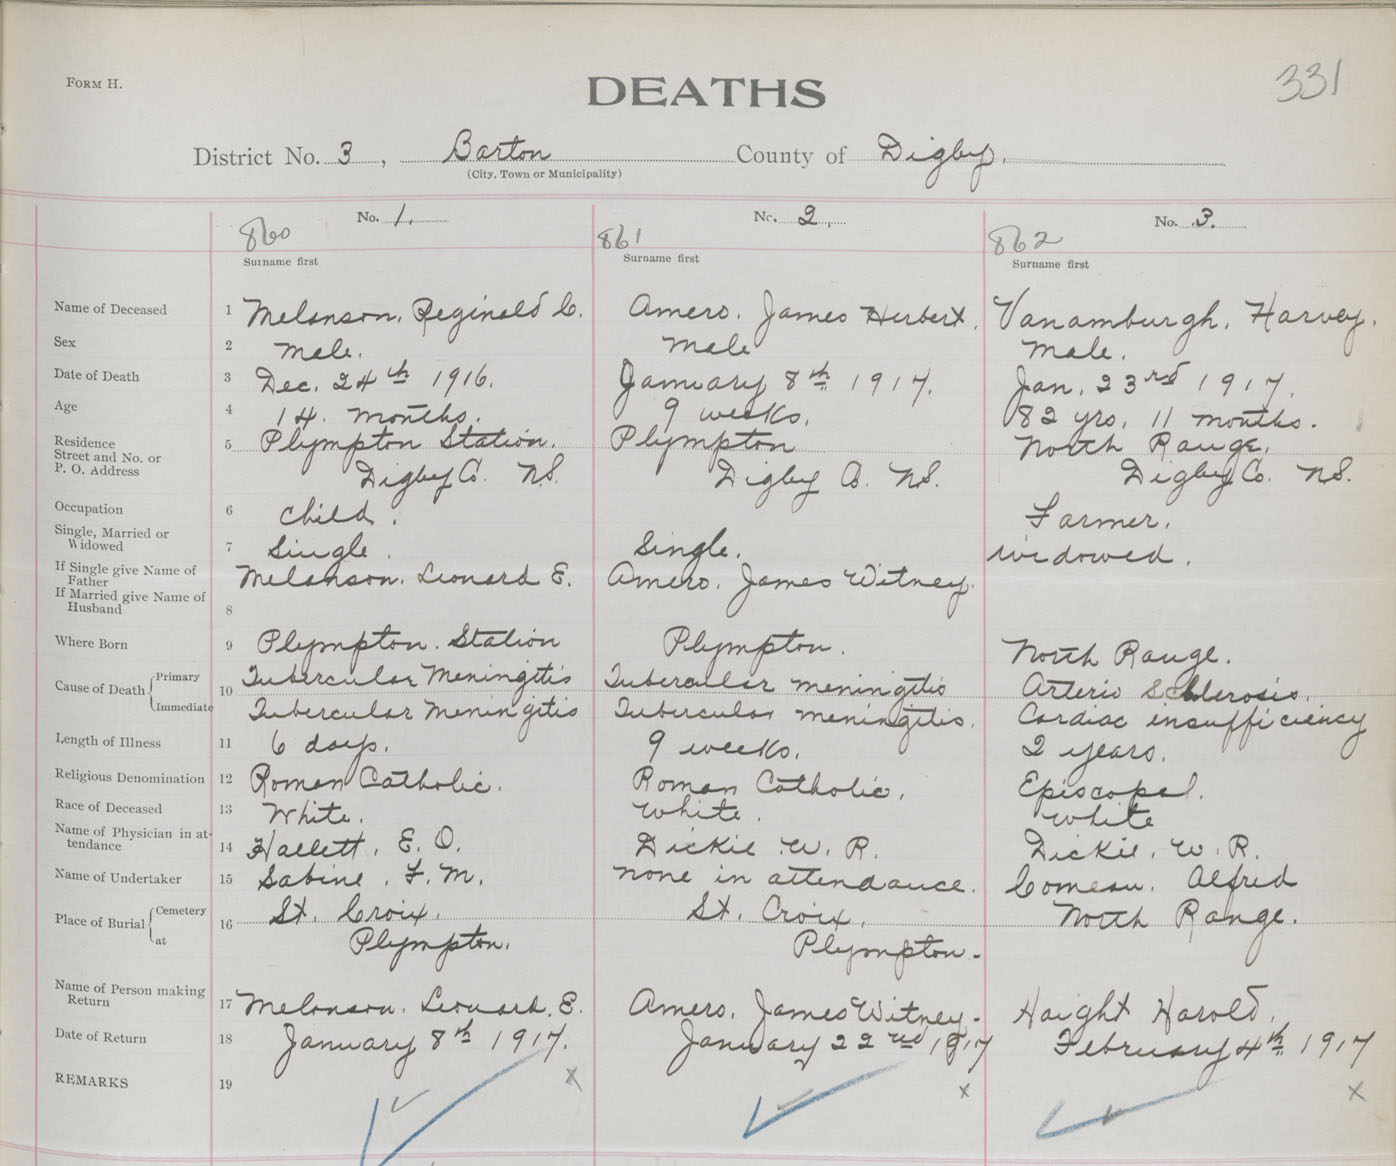 FORM H.
DEATHS
331
District No. 3, Barton County of Digby.
(City, Town or Municipality)
No. 1. No. 2. No. 3.
860 861 862
Surname first Surname first Surname first
Name of Deceased 1 Melanson, Reginald C. Amero, James Herbert. Vanamburgh, Harvey.
Sex 2 male. male male.
Date of Death 3 Dec. 24th 1916. January 8th 1917. Jan. 23rd 1917.
Age 4 14 months. 9 weeks. 82 yrs, 11 months.
Residence Street and No. or P. O. Address 5 Plympton Station. Plympton North Range,
Digby Co. N.S. Digby Co. N.S. Digby Co. N.S.
Occupation 6 child. Farmer.
Single, Married or Widowed 7 Single. Single. widowed.
If Single give Name of Father Melanson, Leonard E. Amero, James Witney.
If Married give Name of Husband 8
Where Born 9 Plympton Station Plympton. North Range.
Cause of Death Primary 10 Tubercular Meningitis Tubercular meningitis Arterio Schlerosis.
Immediate Tubercular Meningitis Tubercular meningitis. Cardiac insufficiency
Length of Illness 11 6 days. 9 weeks. 2 years.
Religious Denomination 12 Roman Catholic. Roman Catholic. Episcopal.
Race of Deceased 13 White. White. White
Name of Physician in attendance 14 Hallett, E. O. Dickie W. R. Dickie, W. R.
Name of Undertaker 15 Sabine, F. M. none in attendance. Comeau, Alfred
Place of Burial Cemetery 16 St. Croix. St. Croix, North Range.
at Plympton. Plympton.
Name of Person making Return 17 Melanson, Leonard. E. Amero, James Witney. Haight Harold.
Date of Return 18 January 8th 1917. January 22nd 1917 February 4th 1917
REMARKS 19 x x x